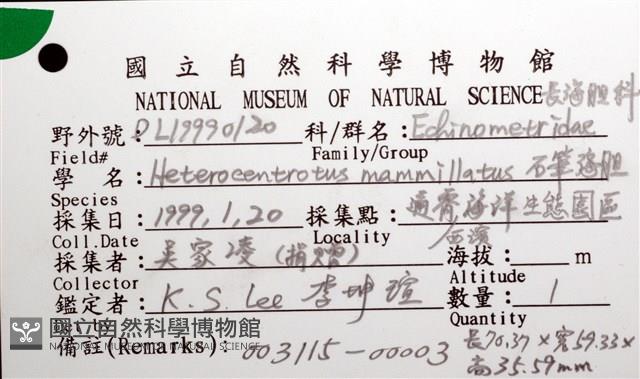 國立自然科學博物館
NATIONAL MUSEUM OF NATURAL SCIENCE 長海胆科
野外號：DL19990120 科/群名：Echinometridae
Field# Family/Group
學 名：Heterocentrotus mammillatus 石筆海胆
Species
採集日：1999,1,20 採集點：海洋生態園區
Coll.Date Locality
採集者：吳家凌(捐贈) 海拔： m
Collector Altitude
鑑定者：K.S. Lee 李坤瑄 數量：1
Quantity
國立自然科學博物館
NATIONAL MUSEUM OF NATURAL SCIENCE
備註(Remarks)：003115-00003 長70.37×寬59.33×
高35.59mm